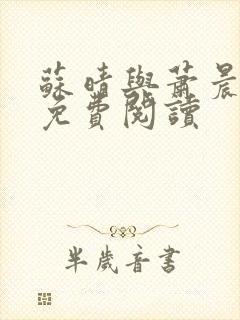 蘇晴與蕭晨
免費閱讀
半歲音書